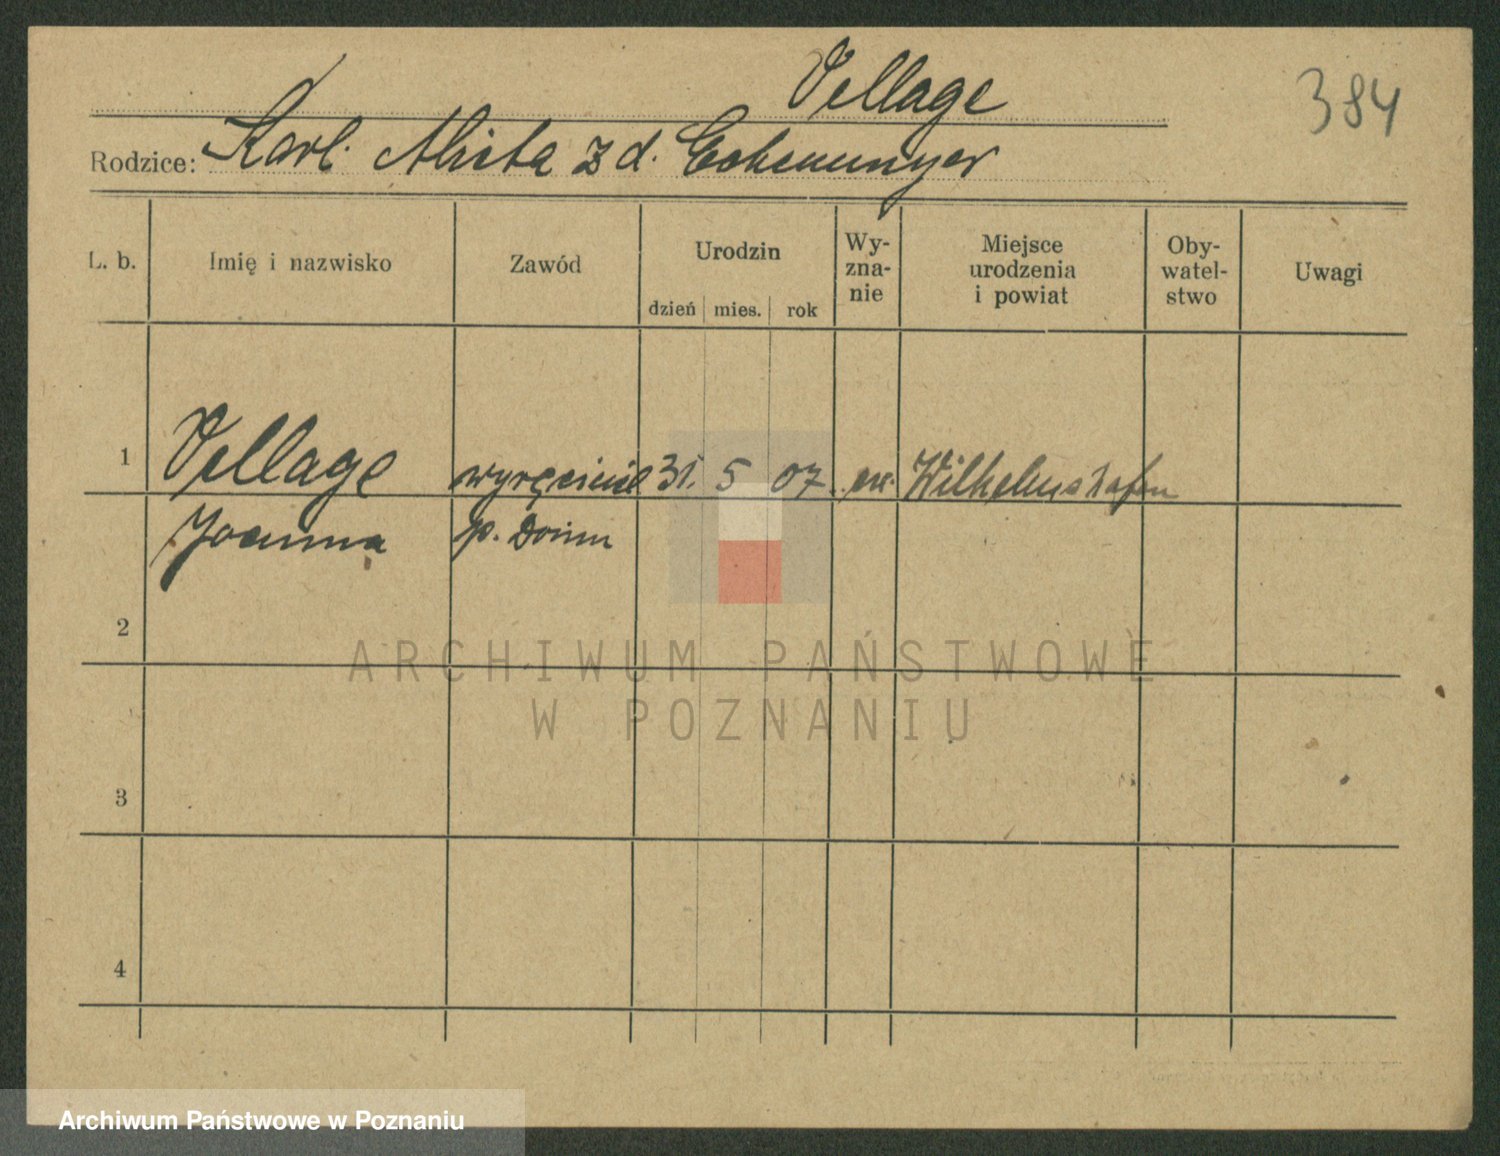 Vellage
384
Rodzice: Karl. z d.
L. b. Imię i nazwisko Zawód Urodzin Wy-zna-nie Miejsce urodzenia i powiat Oby-watel-stwo Uwagi
dzień mies. rok
1 Vellage 31. 5 07. ew. Wilhelmshafen
Joanna p. Domu
2
3
4
ARCHIWUM PAŃSTWOWE
W POZNANIU
Archiwum Państwowe w Poznaniu